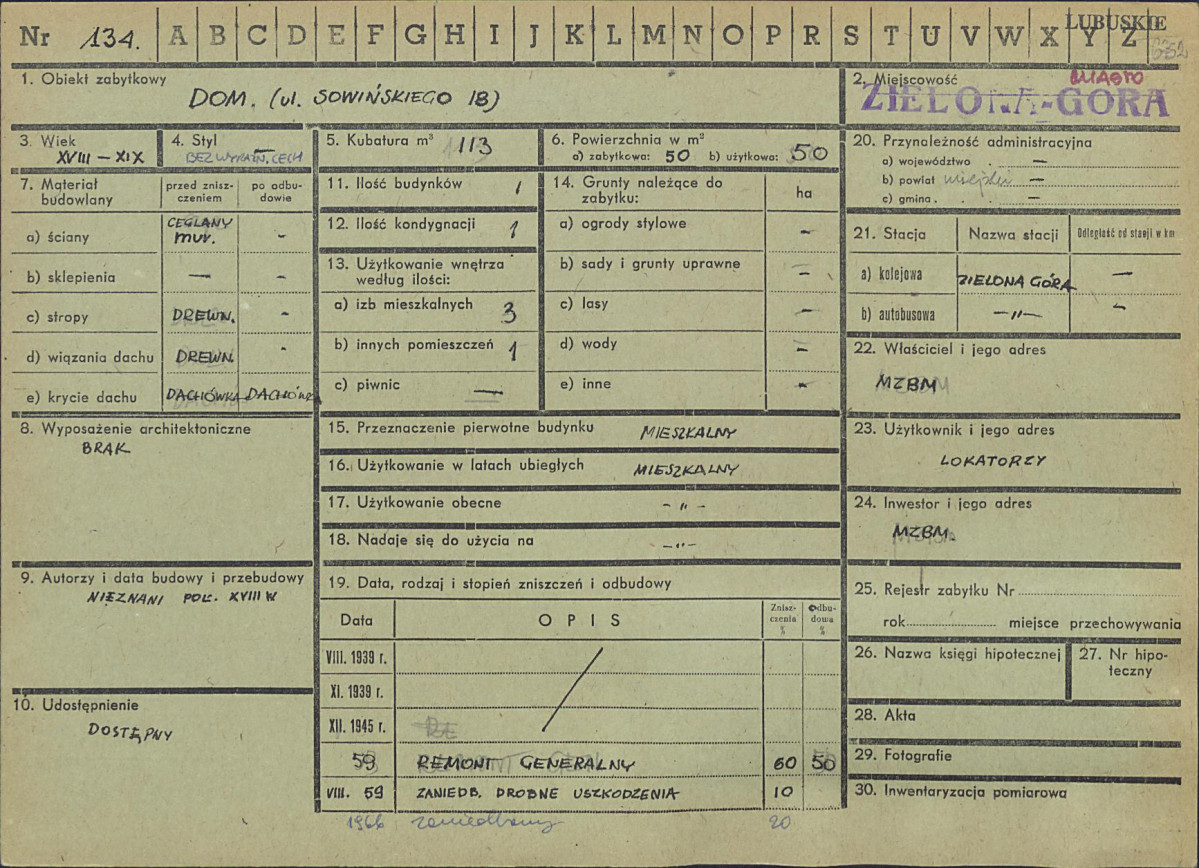 LUBUSKIE
Nr 134. A B C D E F G H I J K L M N O P R S T U V W X Y Z
1. Obiekt zabytkowy
DOM. (ul. SOWIŃSKIEGO 18)
2. Miejscowość
MIASTO
ZIELONA-GÓRA
3. Wiek
XVIII – XIX
4. Styl
BEZ WYRAŹN. CECH
5. Kubatura m³ 113
6. Powierzchnia w m²
a) zabytkowa: 50 b) użytkowa: 50
7. Materiał budowlany
przed zniszczeniem
po odbudowie
a) ściany CEGLANY mur. -
b) sklepienia — -
c) stropy DREWN. -
d) wiązania dachu DREWN. -
e) krycie dachu DACHÓWKA DACHÓWK
8. Wyposażenie architektoniczne
BRAK
9. Autorzy i data budowy i przebudowy
NIEZNANI POŁ. XVIII W
10. Udostępnienie
DOSTĘPNY
11. Ilość budynków 1
12. Ilość kondygnacji 1
13. Użytkowanie wnętrza
według ilości:
a) izb mieszkalnych 3
b) innych pomieszczeń 1
c) piwnic —
14. Grunty należące do
zabytku:
ha
a) ogrody stylowe -
b) sady i grunty uprawne -
c) lasy -
d) wody -
e) inne -
15. Przeznaczenie pierwotne budynku MIESZKALNY
16. Użytkowanie w latach ubiegłych MIESZKALNY
17. Użytkowanie obecne - „ -
18. Nadaje się do użycia na - „ -
19. Data, rodzaj i stopień zniszczeń i odbudowy
Data OPIS Zniszczenia % Odbudowa %
VIII. 1939 r.
XI. 1939 r.
XII. 1945 r.
59 REMONT GENERALNY 60 50
VIII. 59 ZANIEDB. DROBNE USZKODZENIA 10
1966 zaniedbany 20
20. Przynależność administracyjna
a) województwo . —
b) powiat miejski —
c) gmina . —
21. Stacja Nazwa stacji Odległość od stacji w km
a) kolejowa ZIELONA GÓRA —
b) autobusowa – „ – -
22. Właściciel i jego adres
MZBM
23. Użytkownik i jego adres
LOKATORZY
24. Inwestor i jego adres
MZBM.
25. Rejestr zabytku Nr
rok miejsce przechowywania
26. Nazwa księgi hipotecznej
27. Nr hipoteczny
28. Akta
29. Fotografie
30. Inwentaryzacja pomiarowa